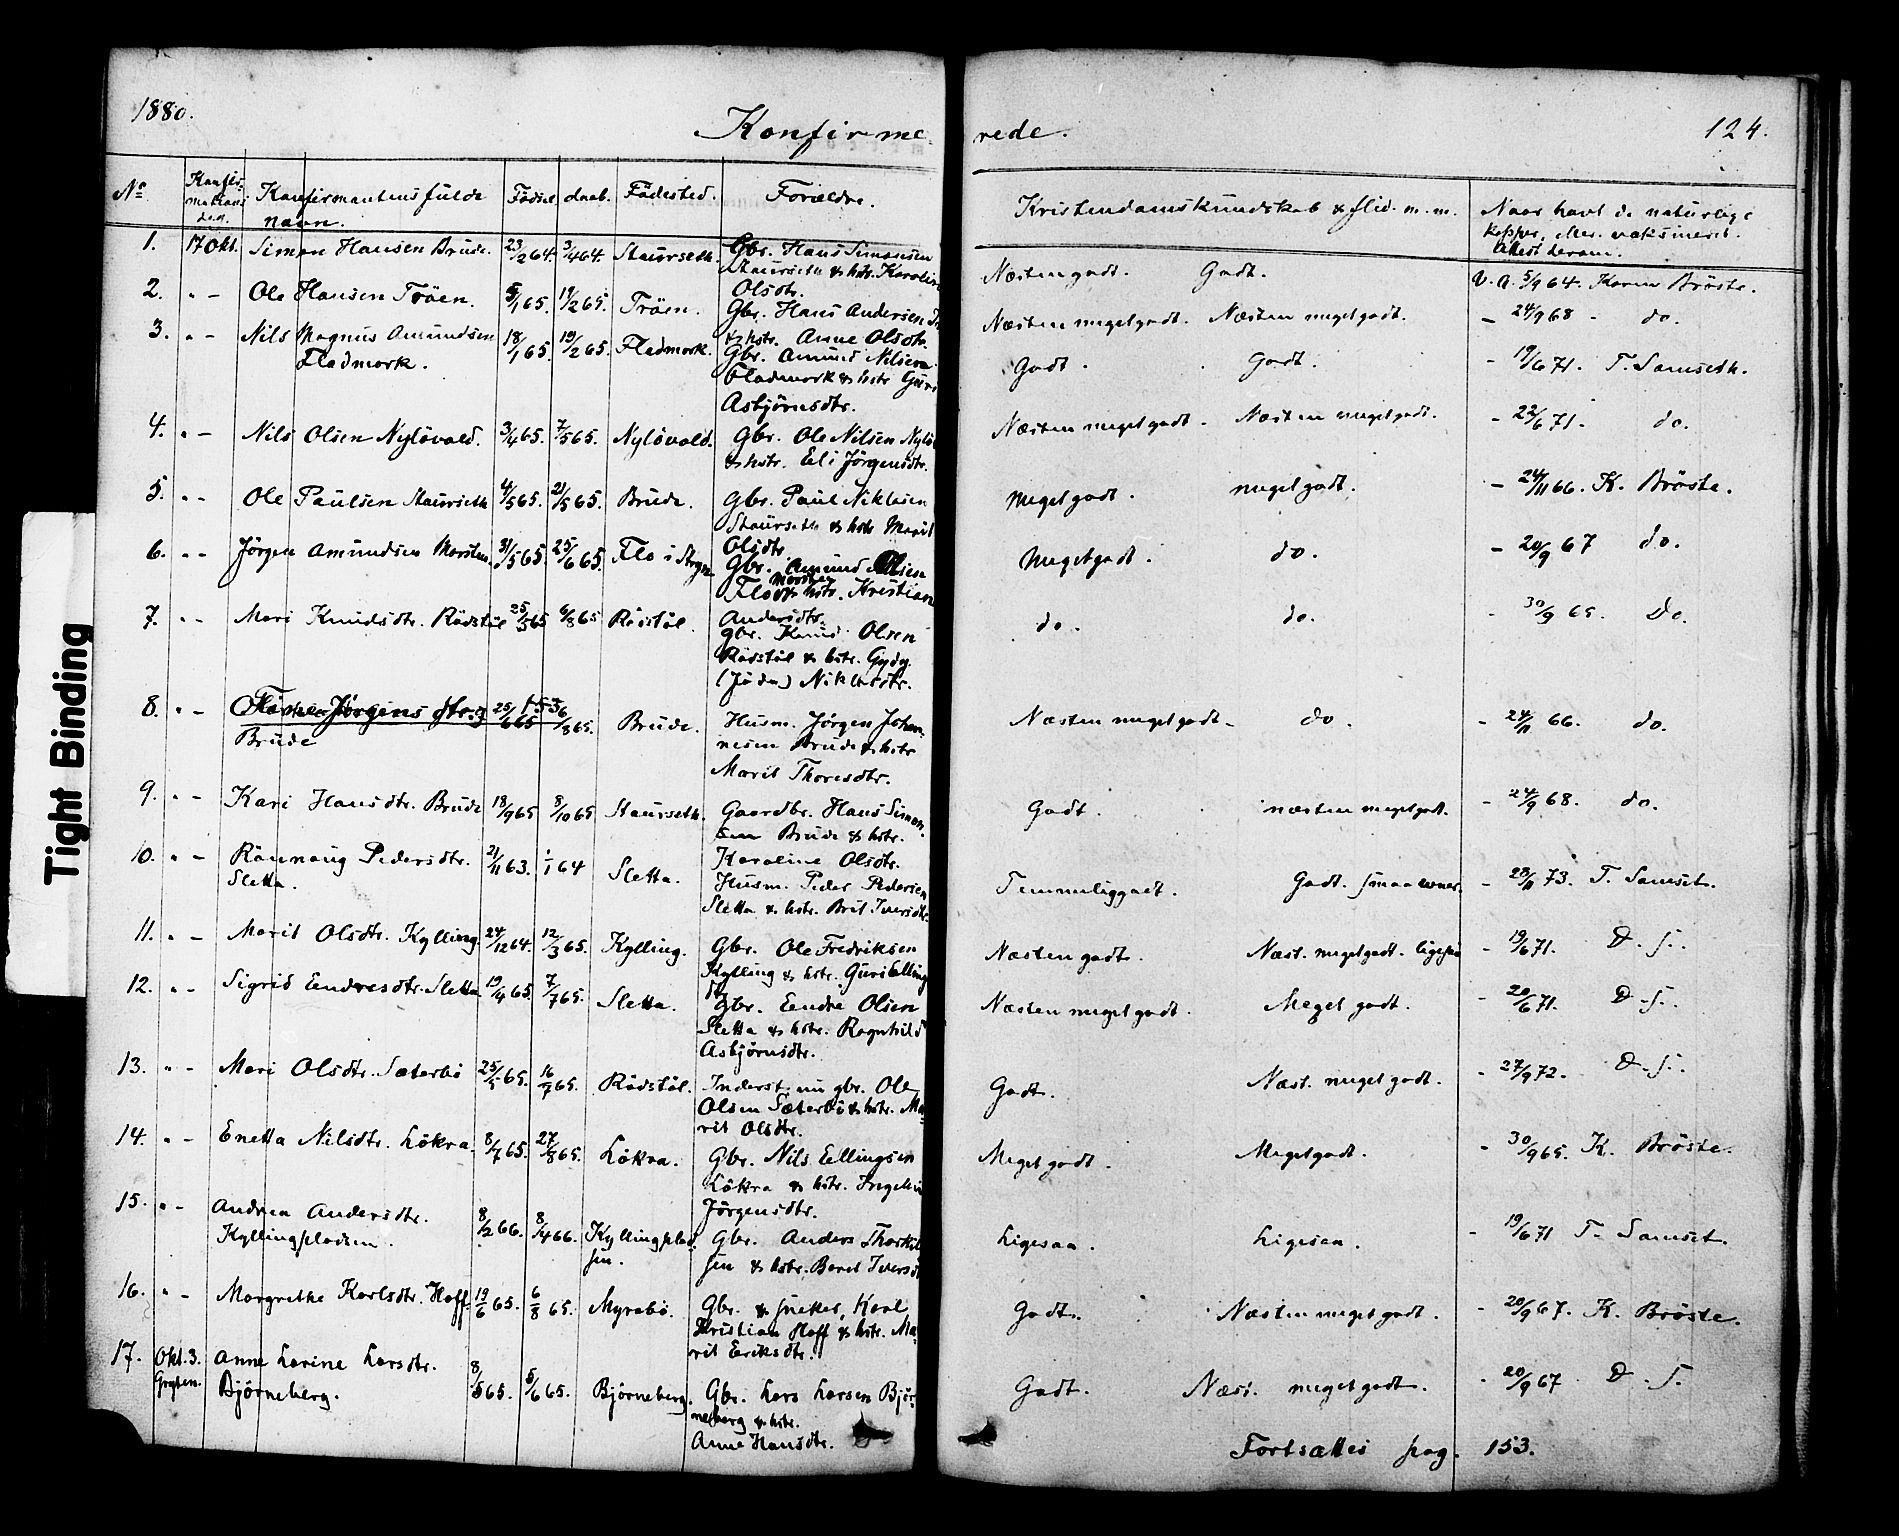 1880.
Konfirme-
rede.
124.
No
Konfir-
mations
dag.
Konfirmantens fulde
navn.
Födsel
daab.
Födested.
Forældre.
Kristendomskundskab & flid. m. m.
Naar havt de naturlige
kopper, eller vaksineret.
Attest derom.
1. 17 Okt. Simon Hansen Brude. 23/2 64. 3/4 64. Staurseth. Gbr. Hans Simonsen
Staurseth & hstr. Karoline
Olsdtr.
Næsten godt. Godt. V. a. 5/9 64. Karen Bröste.
2. " - Ole Hansen Tröen. 5/1 65. 19/2 65. Tröen. Gbr. Hans Andersen
& hstr. Anne Olsdtr.
Næsten meget godt. Næsten meget godt. - 24/9 68 - do.
3. " - Nils Magnus Amundsen 18/1 65. 19/2 65. Fladmork. Gbr. Amund Nilsen
Fladmork.
Fladmork & hstr Guri
Asbjörnsdtr.
Godt. Godt. - 19/6 71. T. Samseth.
4. " - Nils Olsen Nylövold. 3/4 65. 7/5 65. Nylövold. Gbr. Ole Nilsen Nylö
& hstr. Eli Jörgensdtr.
Næsten meget godt. Næsten meget godt. - 22/6 71. do.
5. " - Ole Paulsen Staurseth 4/5 65. 21/5 65. Brude. Gbr. Paul Niklasen
Staurseth & hstr Marit
Olsdtr.
Meget godt. meget godt. - 24/11 66. K. Bröste.
6. " - Jörgen Amundsen Morsten. 31/5 65. 25/6 65. Flo i Stryn Gbr. Amund Olsen
Morsten
Flo & hstr. Kristiane
Andersdtr.
Meget godt. do. - 20/9 67 do.
7. " - Mari Knudsdtr. Rödstöl 25/5 65 6/8 65 Rödstöl. Gbr. Knud Olsen
Rödstöl & hstr. Gyda
(Jöda) Niklasdtr.
do. do. - 30/9 65. Do.
8. " - Jörgensdtr. 25/6 65 153 6/8 65. Brude. Husm. Jörgen Johan-
Brude
nesen Brude & hstr
Marit Thoresdtr.
Næsten meget godt - do. - 24/11 66. do.
9. " - Kari Hansdtr. Brude 18/9 65 8/10 65 Staurseth. Gaardbr. Hans Simon-
sen Brude & hstr.
Karoline Olsdtr.
Godt. næsten meget godt. - 24/9 68. do.
10. " - Rönnaug Pedersdtr. 21/11 63. 1/1 64 Sletta. Husm. Peder Pedersen
Sletta.
Sletta & hstr. Brit Iversdtr.
Temmelig godt. Godt. smaa evner. - 28/11 73. T. Samset.
11. " - Marit Olsdtr. Kylling 24/12 64. 12/3 65. Kylling. Gbr. Ole Fredriksen
Kylling & hstr. Guri Elling
dtr
Næsten godt. Næst. meget godt. ligesaa - 19/6 71. D. S.
12. " - Sigrid Endresdtr. Sletta 19/4 65. 7/7 65. Sletta. Gbr. Endre Olsen
Sletta & hstr. Ragnhild
Asbjörnsdtr.
Næsten meget godt. Meget godt. - 20/6 71. D. S.
13. " - Mari Olsdtr. Sæterbö 25/5 65. 16/7 65. Rödstöl. Inderst. nu gbr. Ole
Olsen Sæterbö & hstr. Ma-
rit Olsdtr.
Godt. Næst. meget godt. - 27/9 72. D. S.
14. " - Enetta Nilsdtr. Lökra. 8/7 65. 27/8 65. Lökra. Gbr. Nils Ellingsen
Lökra & hstr. Ingeline
Jörgensdtr.
Meget godt. Meget godt. - 30/9 65. K. Bröste.
15. " - Andrea Andersdtr. 8/2 66. 8/4 66. Kyllingplad- Gbr. Anders Thorkel
Kyllingpladsen.
sen.
sen & hstr. Beret Iversdtr
Ligesaa. Ligesaa. - 19/6 71 T. Samset.
16. " - Margrethe Karlsdtr. Hoff 19/6 65. 6/8 65. Myrebö. Gbr. & snekker Karl
Kristian Hoff & hstr. Ma-
rit Eriksdtr.
Godt. Næsten meget godt. - 20/9 67. K. Bröste.
17. Okt. 3. Anne Larine Larsdtr. 8/5 65. 5/6 65. Björneberg. Gbr. Lars Larsen Björ-
Grytten. Björneberg.
neberg & hstr.
Anne Hansdtr.
Godt. Næst. meget godt. - 20/9 67 D. S.
Fortsættes pag. 153.
Tight Binding